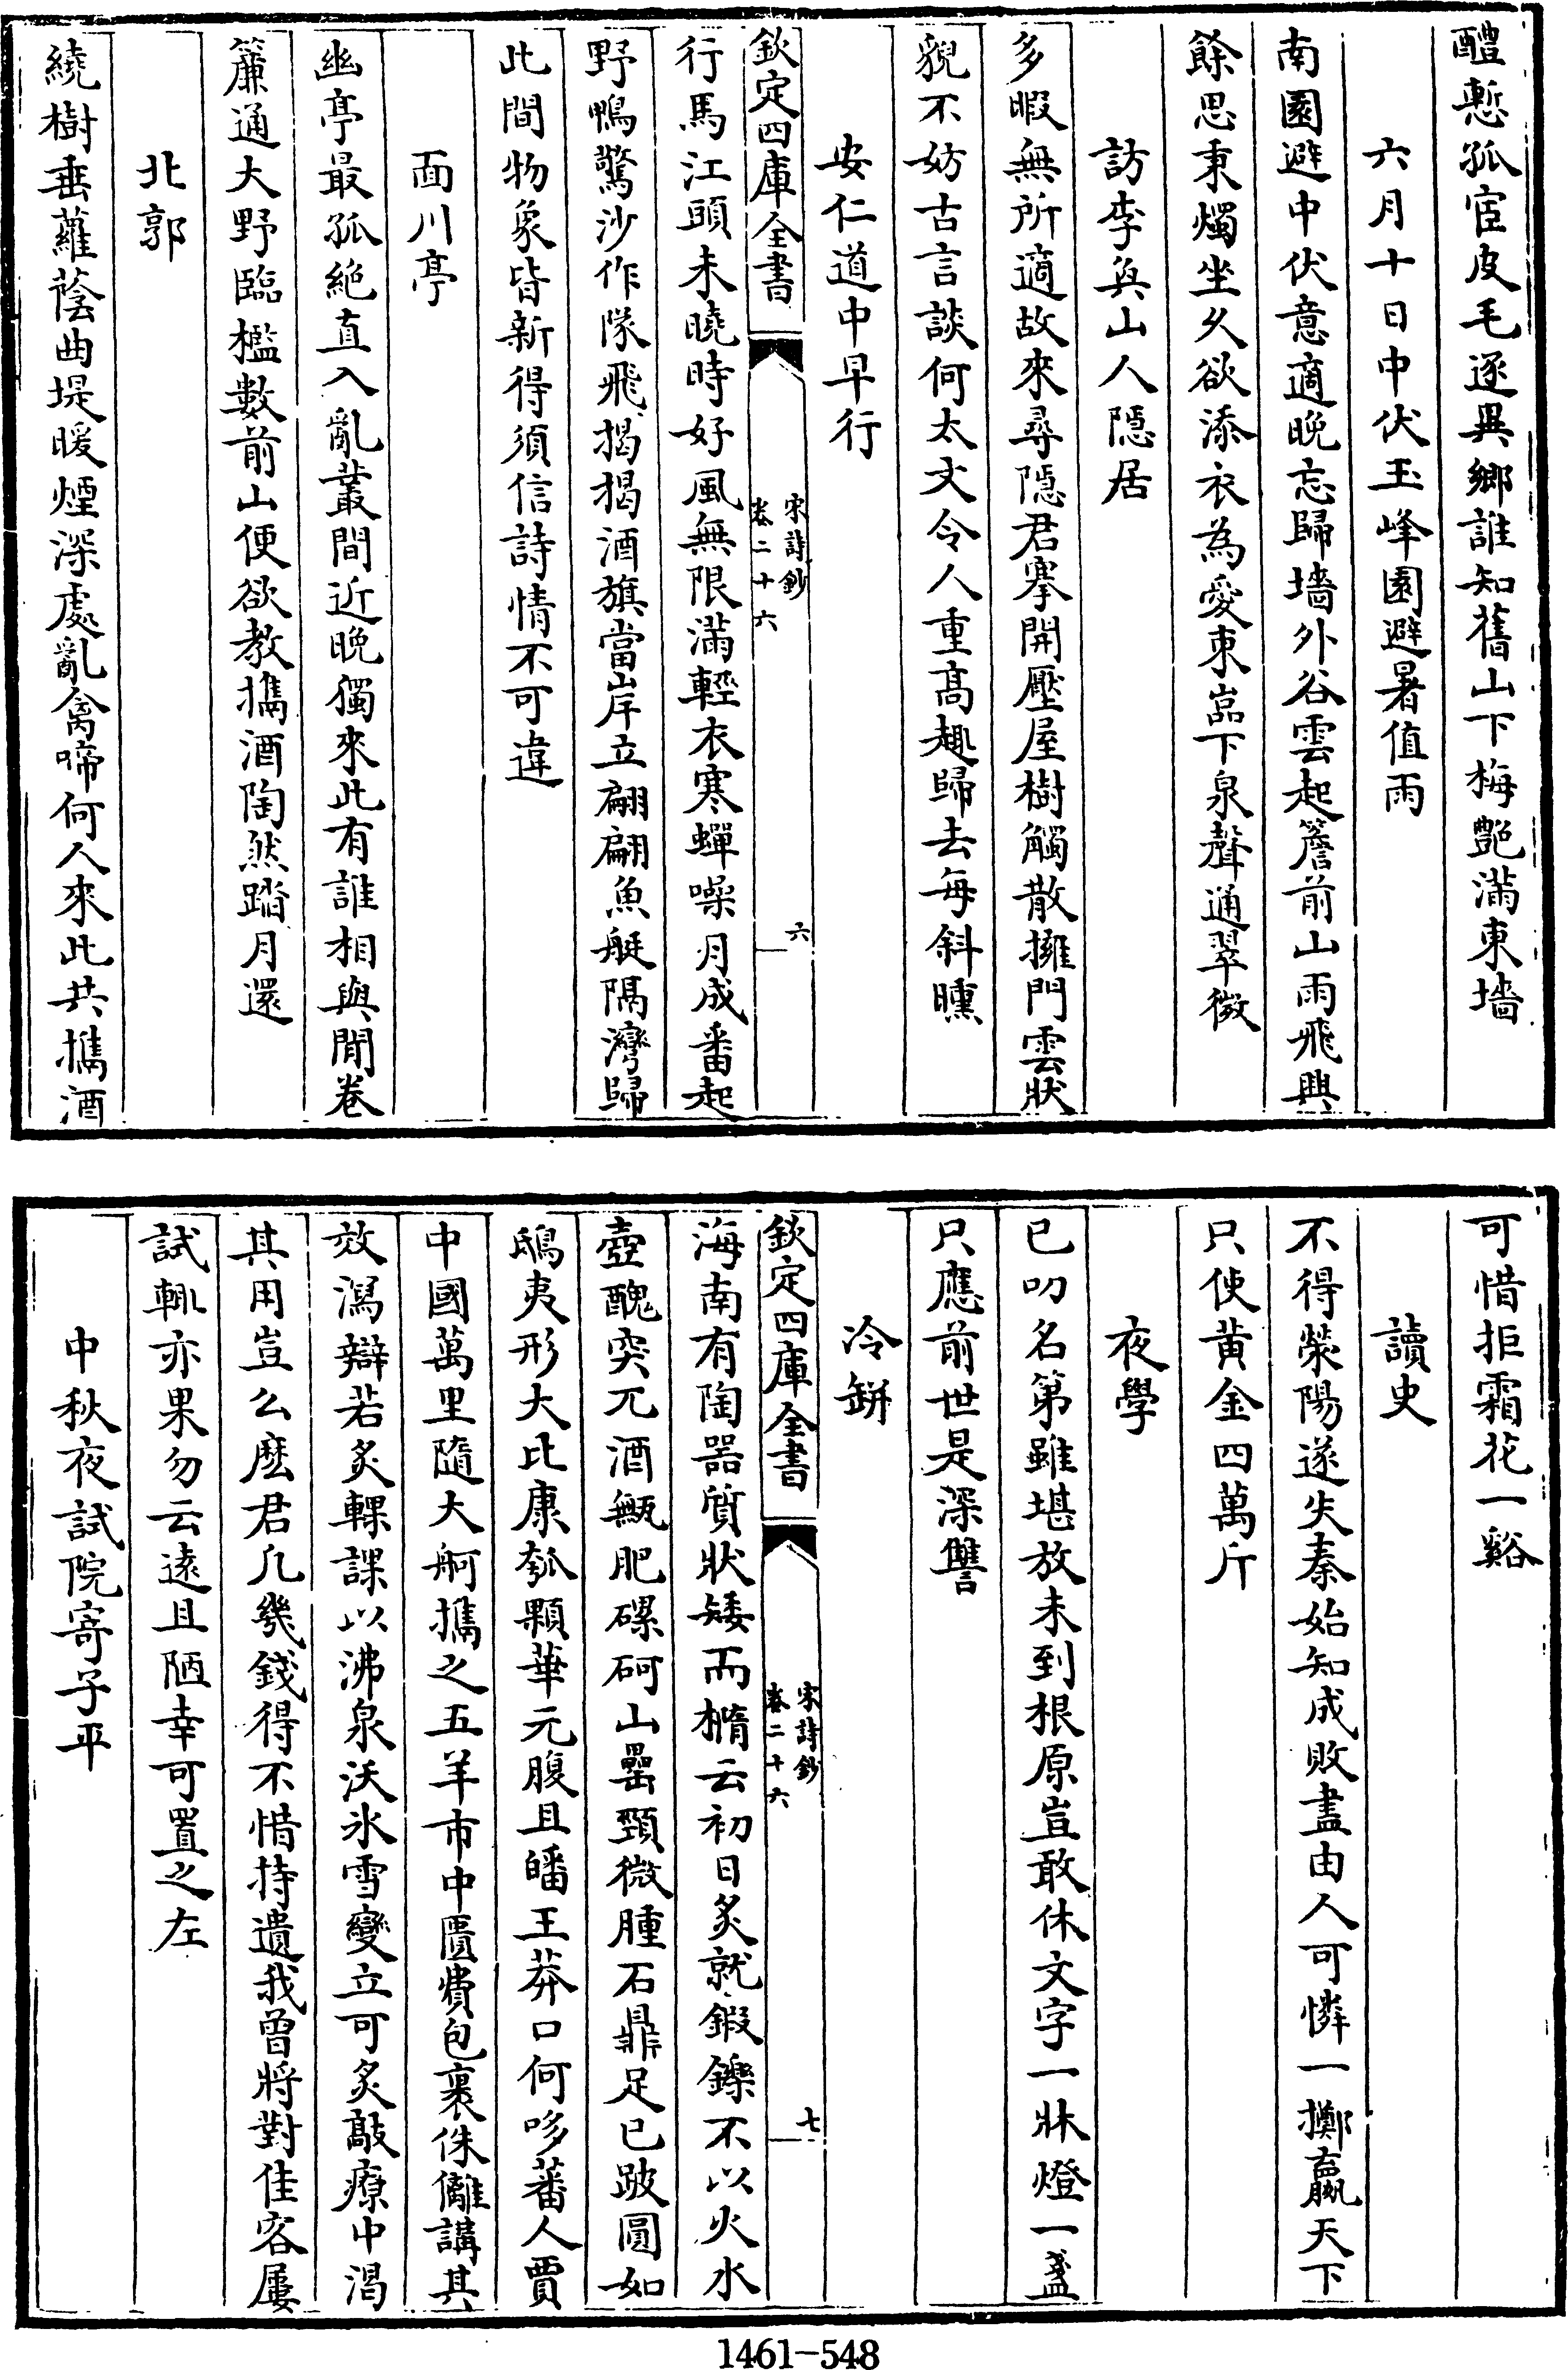 醴慙孤宦皮毛逐異鄉誰知舊山下梅艷滿東墻
六月十日中伏玉峰園避暑值雨
南園避中伏意適晚忘歸墻外谷雲起簷前山雨飛興
餘思秉燭坐久欲添衣為愛東嵓下泉聲通翠微
訪李與山人隱居
多暇無所適故來尋隱君搴開壓屋樹觸散擁門雲狀
貎不妨古言談何太文令人重高趣歸去每斜曛
安仁道中早行
欽定四庫全書
宋詩鈔
卷二十六
六
行馬江頭未曉時好風無限滿輕衣寒蟬噪月成番起
野鴨驚沙作隊飛揭揭酒旗當岸立翩翩魚艇隔灣歸
此間物象皆新得須信詩情不可違
面川亭
幽亭最孤絶直入亂叢間近晚獨來此有誰相與閒卷
簾通大野臨檻數前山便欲教攜酒陶然踏月還
北郭
繞樹垂蘿蔭曲堤暖煙深處亂禽啼何人來此共攜酒
可惜拒霜花一谿
讀史
不得滎陽遂失秦始知成敗盡由人可憐一擲嬴天下
只使黄金四萬斤
夜學
已叨名第雖堪放未到根原豈敢休文字一牀燈一盞
只應前世是深讐
冷缾
欽定四庫全書
宋詩鈔
卷二十六
七
海南有陶器質狀矮而橢云初日炙就鍜鑠不以火水
壺醜突兀酒甒肥磥砢山罍頸微腫石鼎足已跛圓如
鴟夷形大比康瓠顆華元腹且皤王莽口何哆蕃人賈
中國萬里隨大舸攜之五羊市中匱費包裹侏儷講其
效瀉辯若炙輠課以沸泉沃氷雪變立可炙敲療中渴
其用豈么麽君凡幾錢得不惜持遺我曾將對佳客屢
試輒亦果勿云遠且陋幸可置之左
中秋夜試院寄子平
1461-548